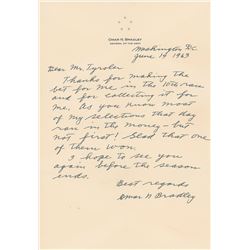 OMAR N. BRADLEY
GENERAL OF THE ARMY
Washington D.C.
June 14 1963
Dear Mr. Tyroler
Thanks for making the
bet for me in the 10th race
and for collecting it for
me. As you know most
of my selections that day
ran in the money - but
not first! Glad that one
of them won.
I hope to see you
again before the season
ends.
Best regards
Omar N Bradley